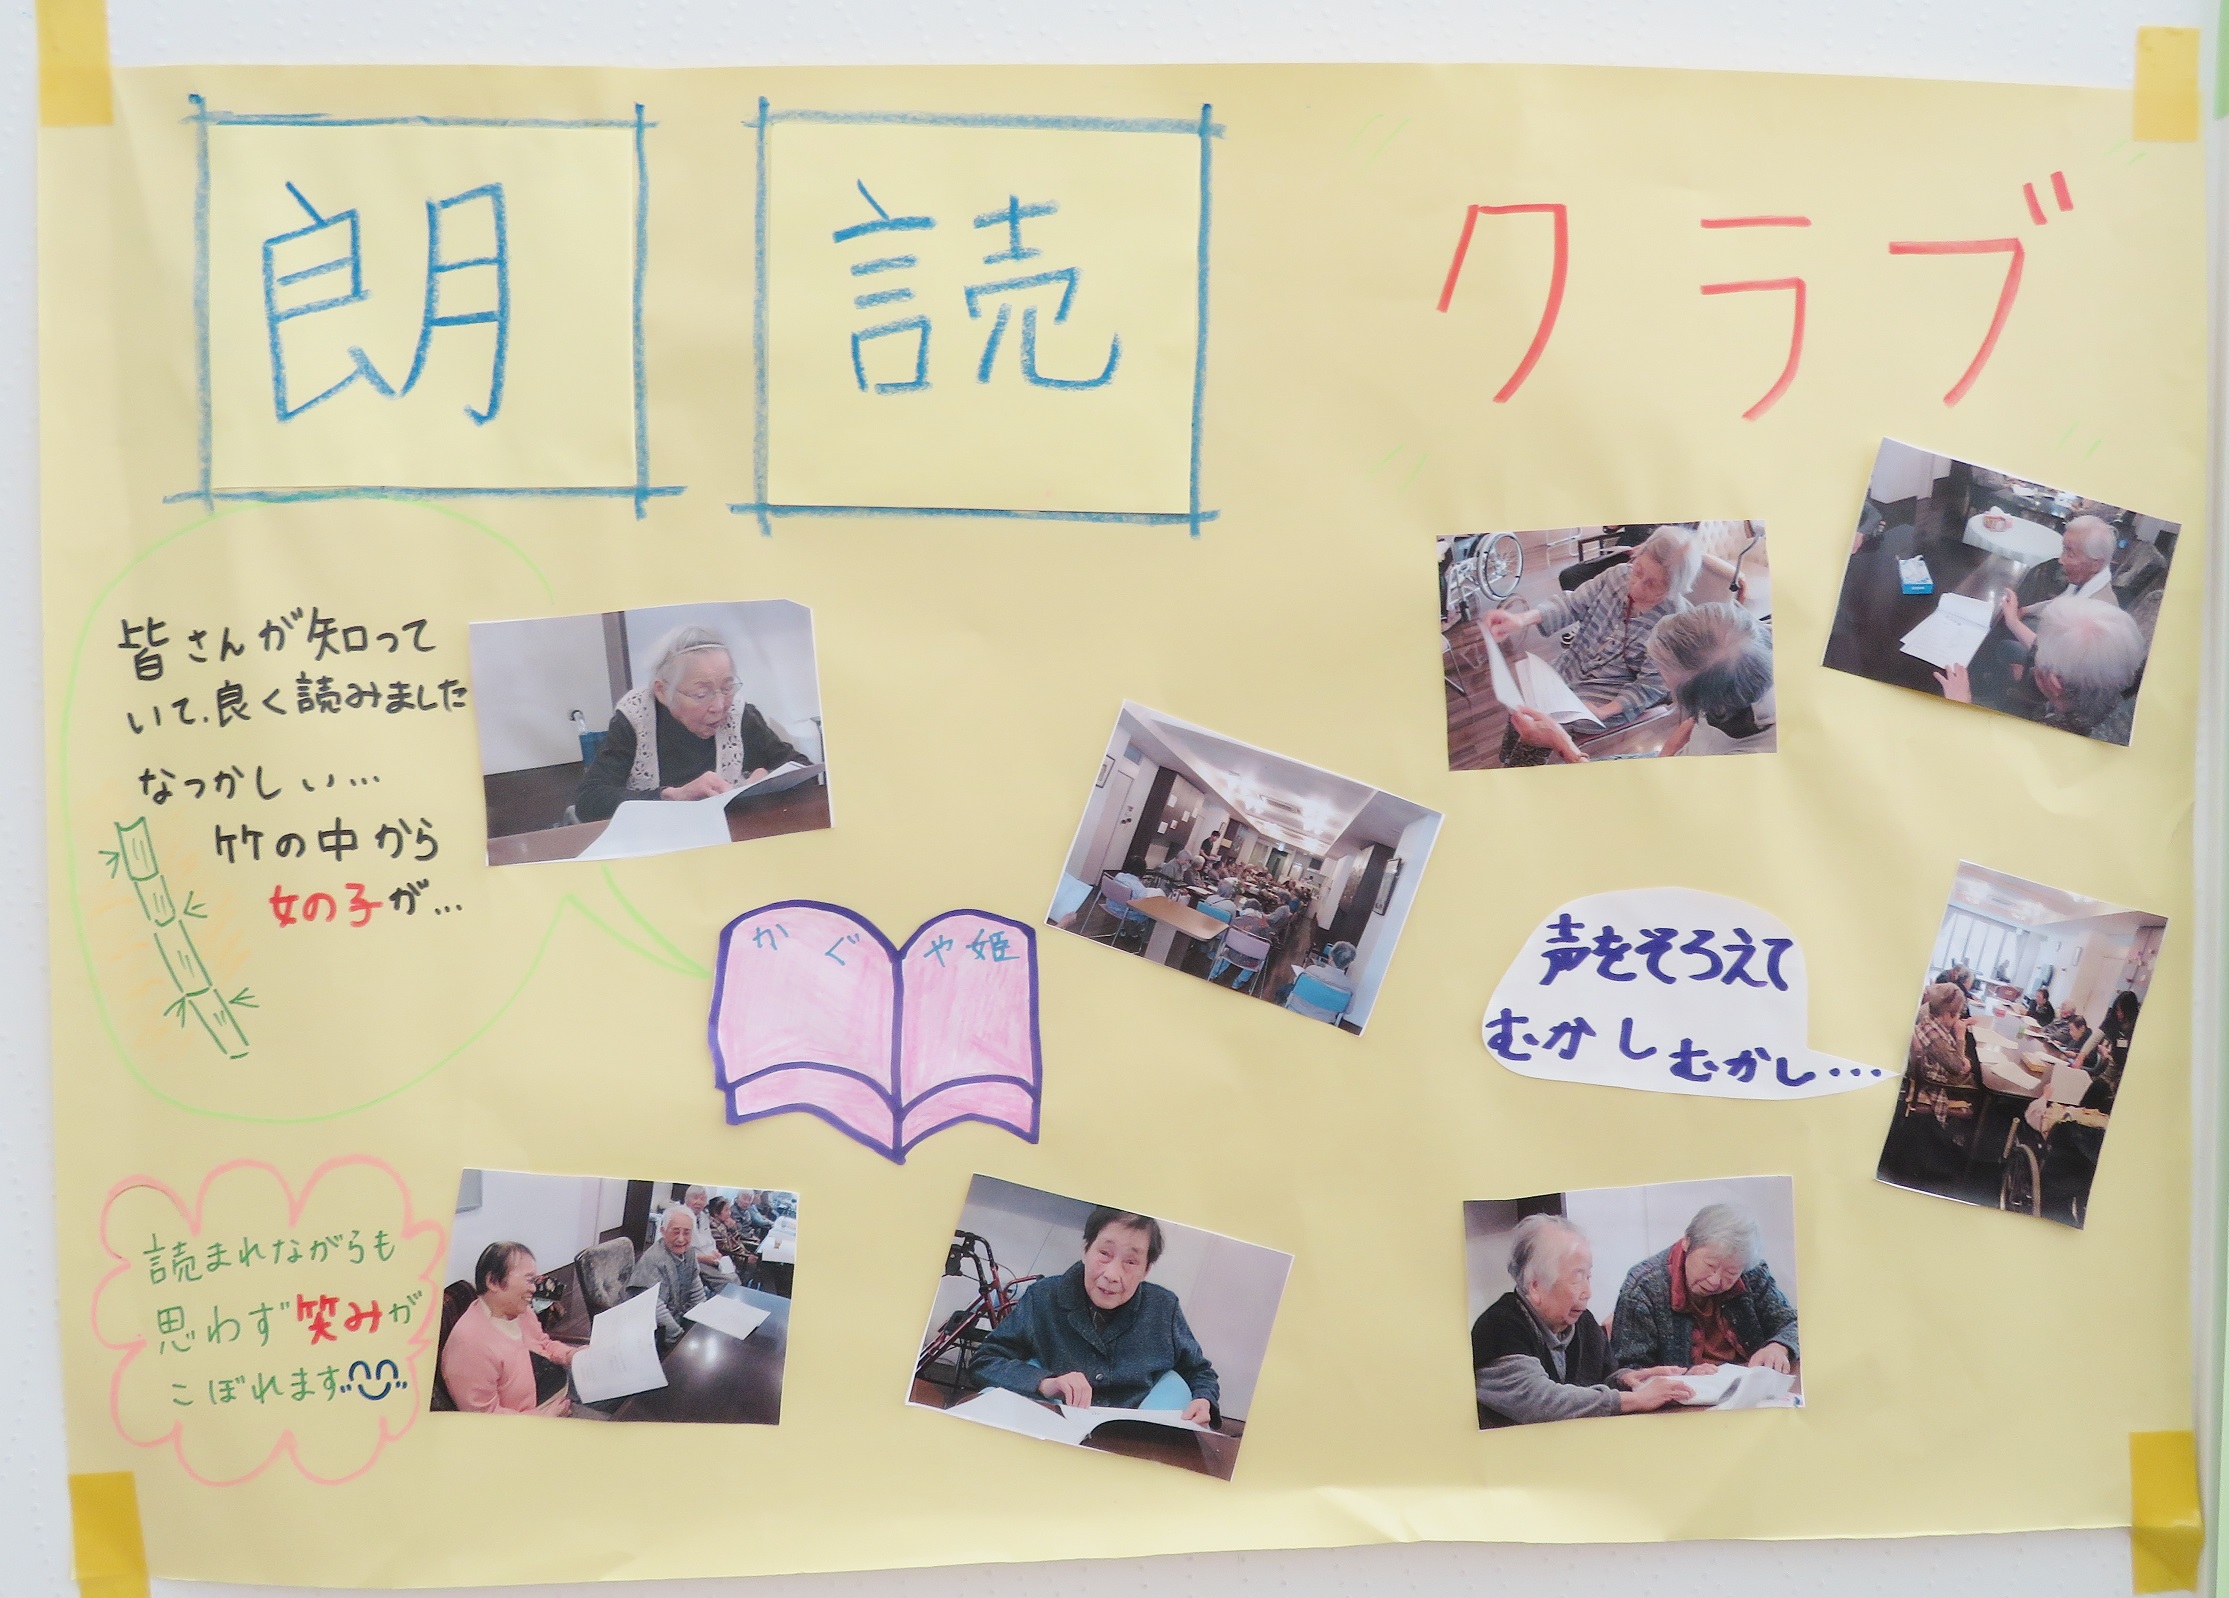 朗読クラブ
皆さんが知って
いて、良く読みました
なつかしい…
竹の中から
女の子が…
かぐや姫
声をそろえて
むかしむかし…
読まれながらも
思わず笑みが
こぼれます